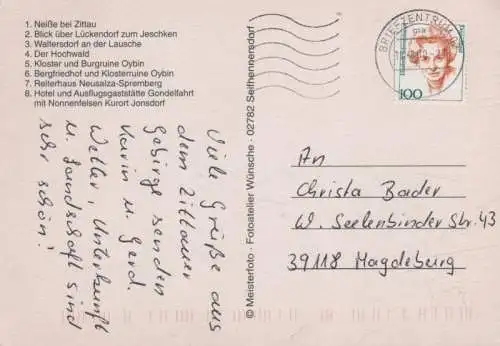 1. Neiße bei Zittau
2. Blick über Lückendorf zum Jeschken
3. Waltersdorf an der Lausche
4. Der Hochwald
5. Kloster und Burgruine Oybin
6. Bergfriedhof und Klosterruine Oybin
7. Reiterhaus Neusalza-Spremberg
8. Hotel und Ausflugsgaststätte Gondelfahrt
mit Nonnenfelsen Kurort Jonsdorf
Viele Grüße aus
dem Zittauer
Gebirge senden
Karin u. Gerd.
Wetter, Unterkunft
u. Landschaft sind
sehr schön!
© Meisterfoto · Fotoatelier Wünsche · 02782 Seifhennersdorf
BRIEFZENTRUM
100
An
Christa Bader
W. Seelenbinder Str. 43
39118 Magdeburg